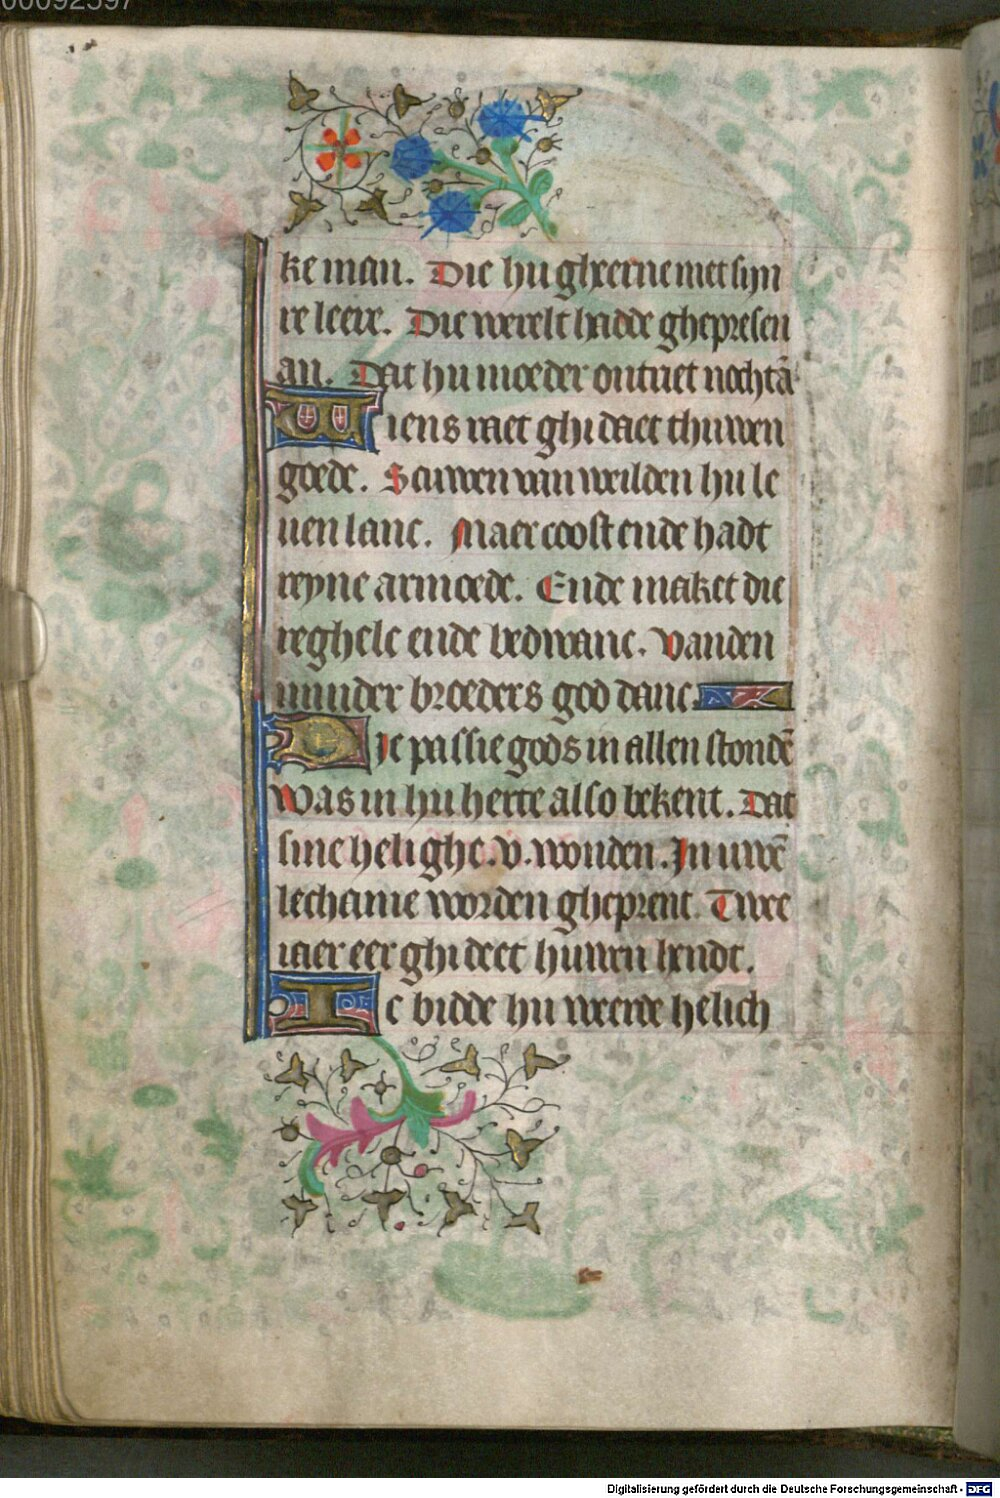 00092597
ke man. Die hu gheerne met sijn
re leere. Die werelt hadde ghepresen
an. Dat hu moeder ontriet nochtã
Wiens raet ghi daet thuwen
goede. Scuwen van weilden hu le
uen lanc. Maer coost ende hadt
reyne armoede. Ende maket die
reghele ende bedwanc. Vanden
minder broeders god danc
Die passie gods in allen stondē
Was in hu herte also bekent. Dat
sine helighe .v. wonden. In uwē
lechame worden gheprent. Twee
iaer eer ghi deet huwen hendt.
Ic bidde hu weerde helich
Digitalisierung gefördert durch die Deutsche Forschungsgemeinschaft - DFG